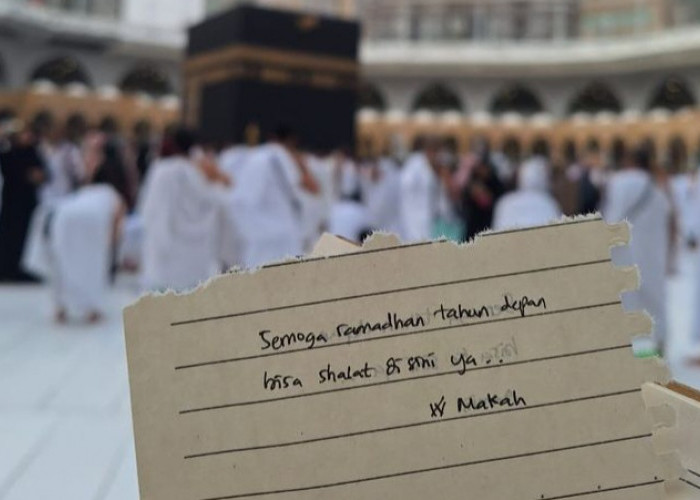 Semoga ramadhan tahun depan
bisa shalat di sini ya..
Makah